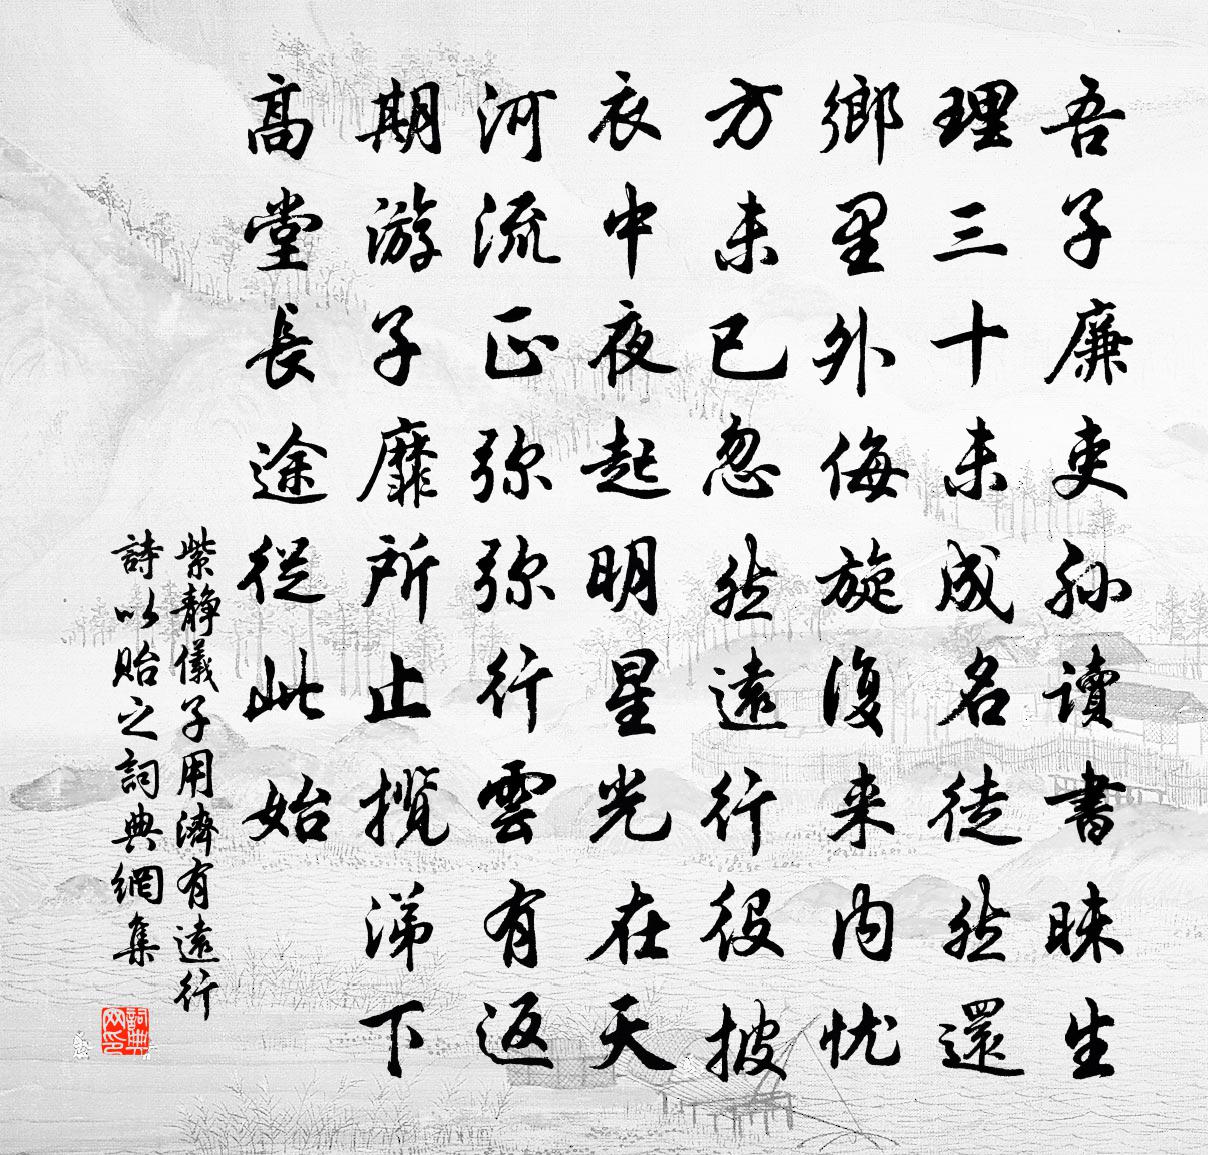 吾子廉吏孙讀書昧生
理三十未成名徒然還
鄉里外侮旋復来内忧
方未已忽然遠行役披
衣中夜起明星光在天
河流正弥弥行雲有返
期游子靡所止揽涕下
高堂長途従此始
紫静儀子用濟有遠行
詩以貽之詞典網集
詞典網印